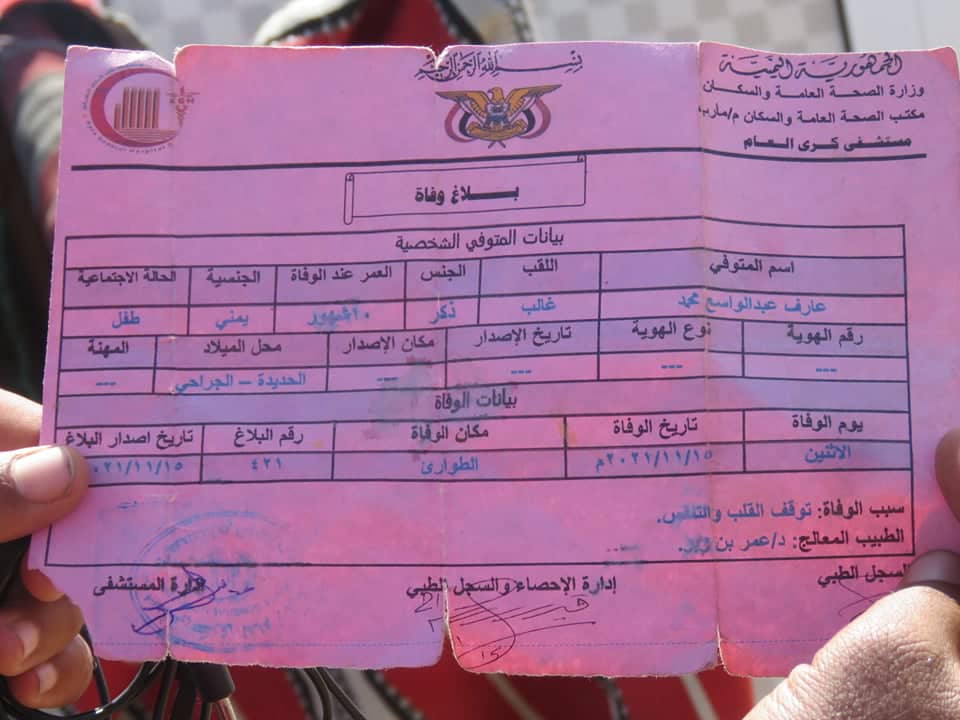 بسم الله الرحمن الرحيم
الجمهورية اليمنية
وزارة الصحة العامة والسكان
مكتب الصحة العامة والسكان م/مارب
مستشفى كرى العام
بلاغ وفاة
بيانات المتوفي الشخصية
اسم المتوفي اللقب الجنس العمر عند الوفاة الجنسية الحالة الاجتماعية
عارف عبدالواسع محمد غالب ذكر شهور يمني طفل
رقم الهوية نوع الهوية تاريخ الإصدار مكان الإصدار محل الميلاد المهنة
--- --- --- --- الحديدة - الجراحي ---
بيانات الوفاة
يوم الوفاة تاريخ الوفاة مكان الوفاة رقم البلاغ تاريخ اصدار البلاغ
الاثنين ٢٠٢١/١١/١٥م الطوارئ ٤٢١ ٠٢١/١١/١٥
سبب الوفاة: توقف القلب والتنفس.
الطبيب المعالج: د/عمر بن
السجل الطبي إدارة الإحصاء والسجل الطبي إدارة المستشفى